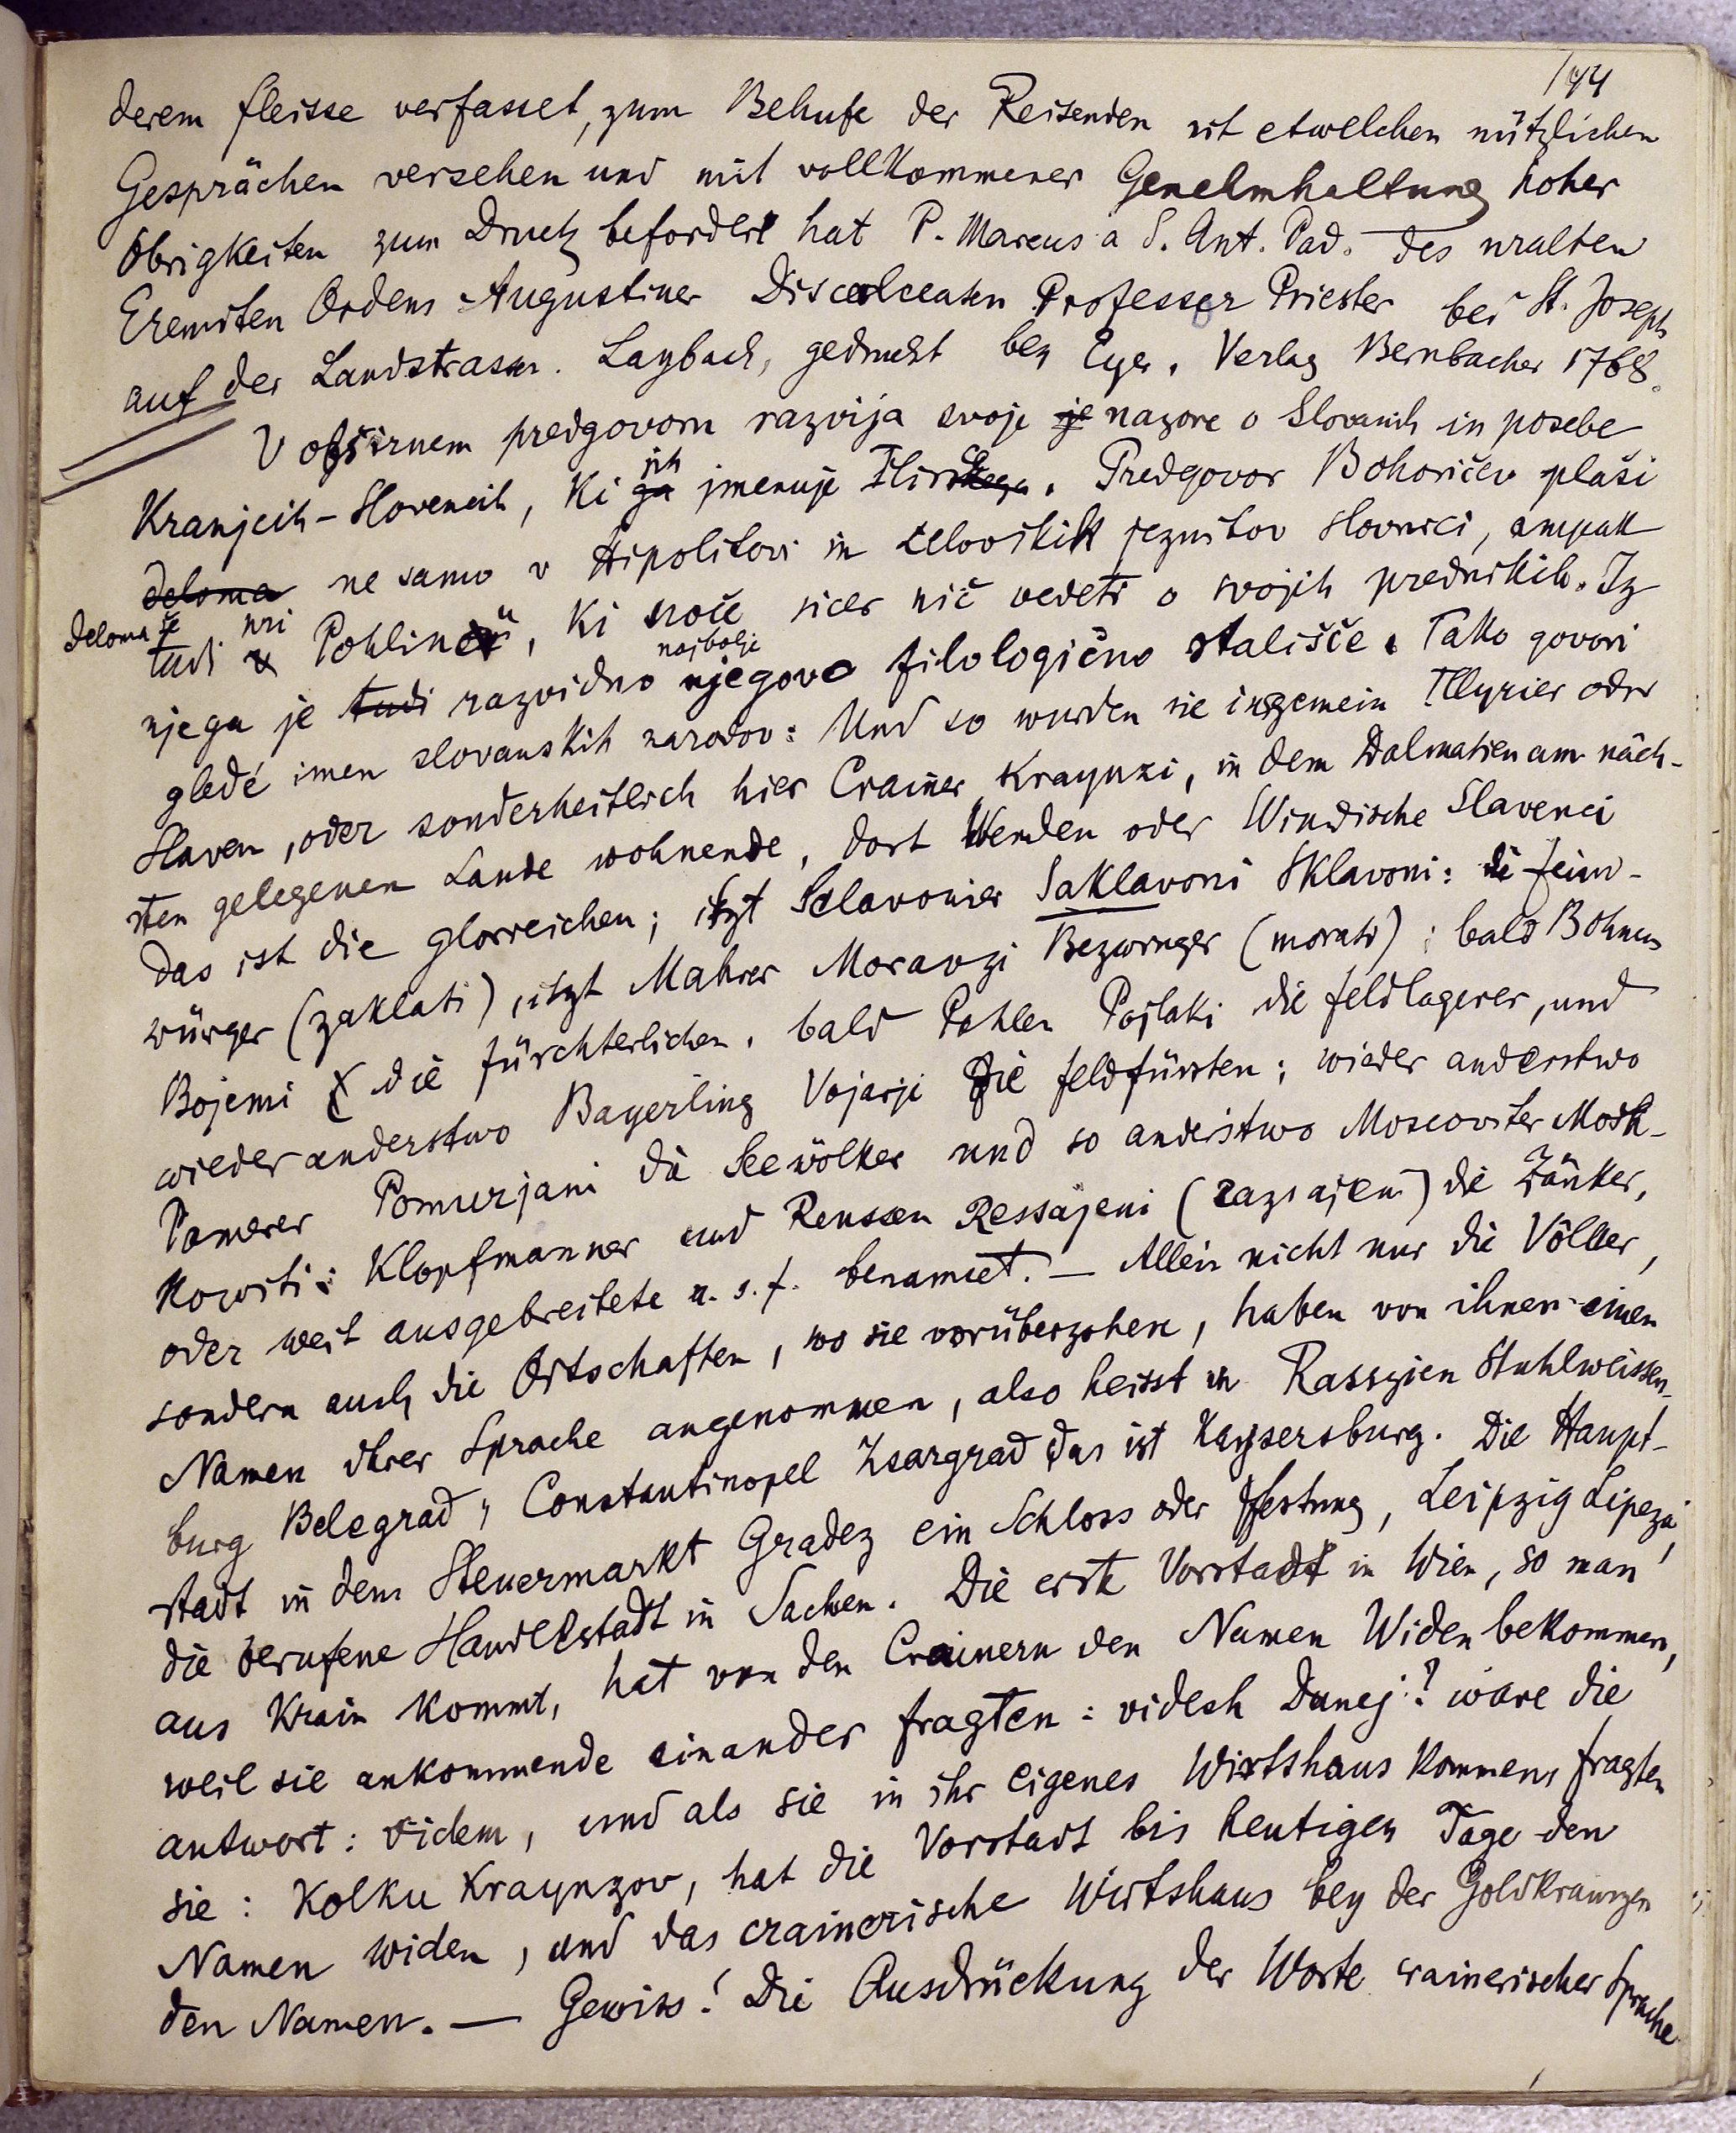 144
derem fleisse verfasset, zum Behufe der Reisenden mit etwelchen nützlichen
Gesprächen versehen und mit vollkommener Genehmhaltung hoher
Obrigkeiten zum Druck befördert hat P. Marcus a S. Ant. Pad. des uralten
Eremiten Ordens Augustiner Discalceaten Professer Priester bei St. Joseph
auf der Landstrassen. Laybach, gedruckt bey Eger. Verlag Bernbacher 1768.
V obširnem predgovoru razvija svoje je nazore o Slovanih in posebe
Kranjcih-Slovencih, ki ga jih imenuje Ilirskega. Predgovor Bohoričev plaši
deloma ne samo v Hipolitovi in celovških jezuitov slovnici, ampak
deloma še tudi v pri Pohlinu, ki noče sicer nič vedeti o svojih prednikih. Iz
njega je tudi razvidno najbolje njegovo filologično stališče. Tako govori
gledé imen slovanskih narodov: Und so wurden sie insgemein Illyrier oder
Slaven, oder sonderheitlich hier Crainer Kraynzi, in dem Dalmatien am näch-
sten gelegenen Lande wohnende, dort Wenden oder Windische Slavenci
das ist die glorreichen; itzt Sclavonier Saklavoni Sklavoni: die feind-
würger (zaklati), itzt Mahrer Moravzi Bezwinger (morati); bald Böhmen
Bojemi die fürchterlichen, bald Pohlen Pojlaki die feldlagerer, und
wieder anderstwo Bayerling Vojarji die feldfürsten; wieder anderstwo
Pomerer Pomurjani die Seevölker und so anderstwo Moscoviter Mosk-
kowiti: Klopfmanner und Reussen Ressajeni (razsajeni) die Zänker,
oder weit ausgebreitete u. s. f. benamset. — Allein nicht nur die Völker,
sondern auch die Ortschaften, wo sie vorüberzohen, haben von ihnen einen
Namen ihrer Sprache angenommen, also heisst in Rassyien Stuhlweissen-
burg Belegrad, Constantinopel Zsargrad das ist Kaysersburg. Die Haupt-
stadt in dem Steuermarkt Gradez ein Schloss oder Festung, Leipzig Lipeza,
die berufene Handelstadt in Sachsen. Die erste Vorstadt in Wien, so man
aus Krain kommt, hat von den Crainern den Namen Widen bekommen,
weil sie ankommende einander fragten: videsh Dunej? wäre die
antwort: videm, und als sie in ihr eigenes Wirtshaus kommen, fragten
sie: Kolku Kraynzov, hat die Vorstadt bis heutigen Tage den
Namen widen, und das crainerische Wirtshaus bey der Goldkranzen
den Namen. — Gewiss! Die Ausdrückung der Worte crainerischer Sprache